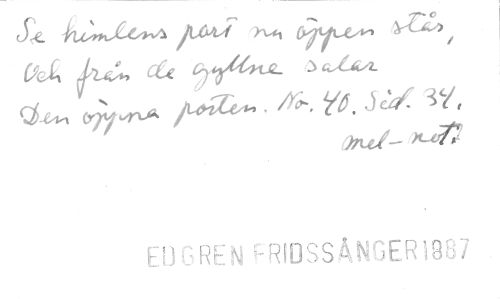 Se himlens port nu öppen står,
Och från de gyllne salar
Den öppna porten. No. 40. Sid. 34.
mel-not.
EDGREN FRIDSSÅNGER 1887